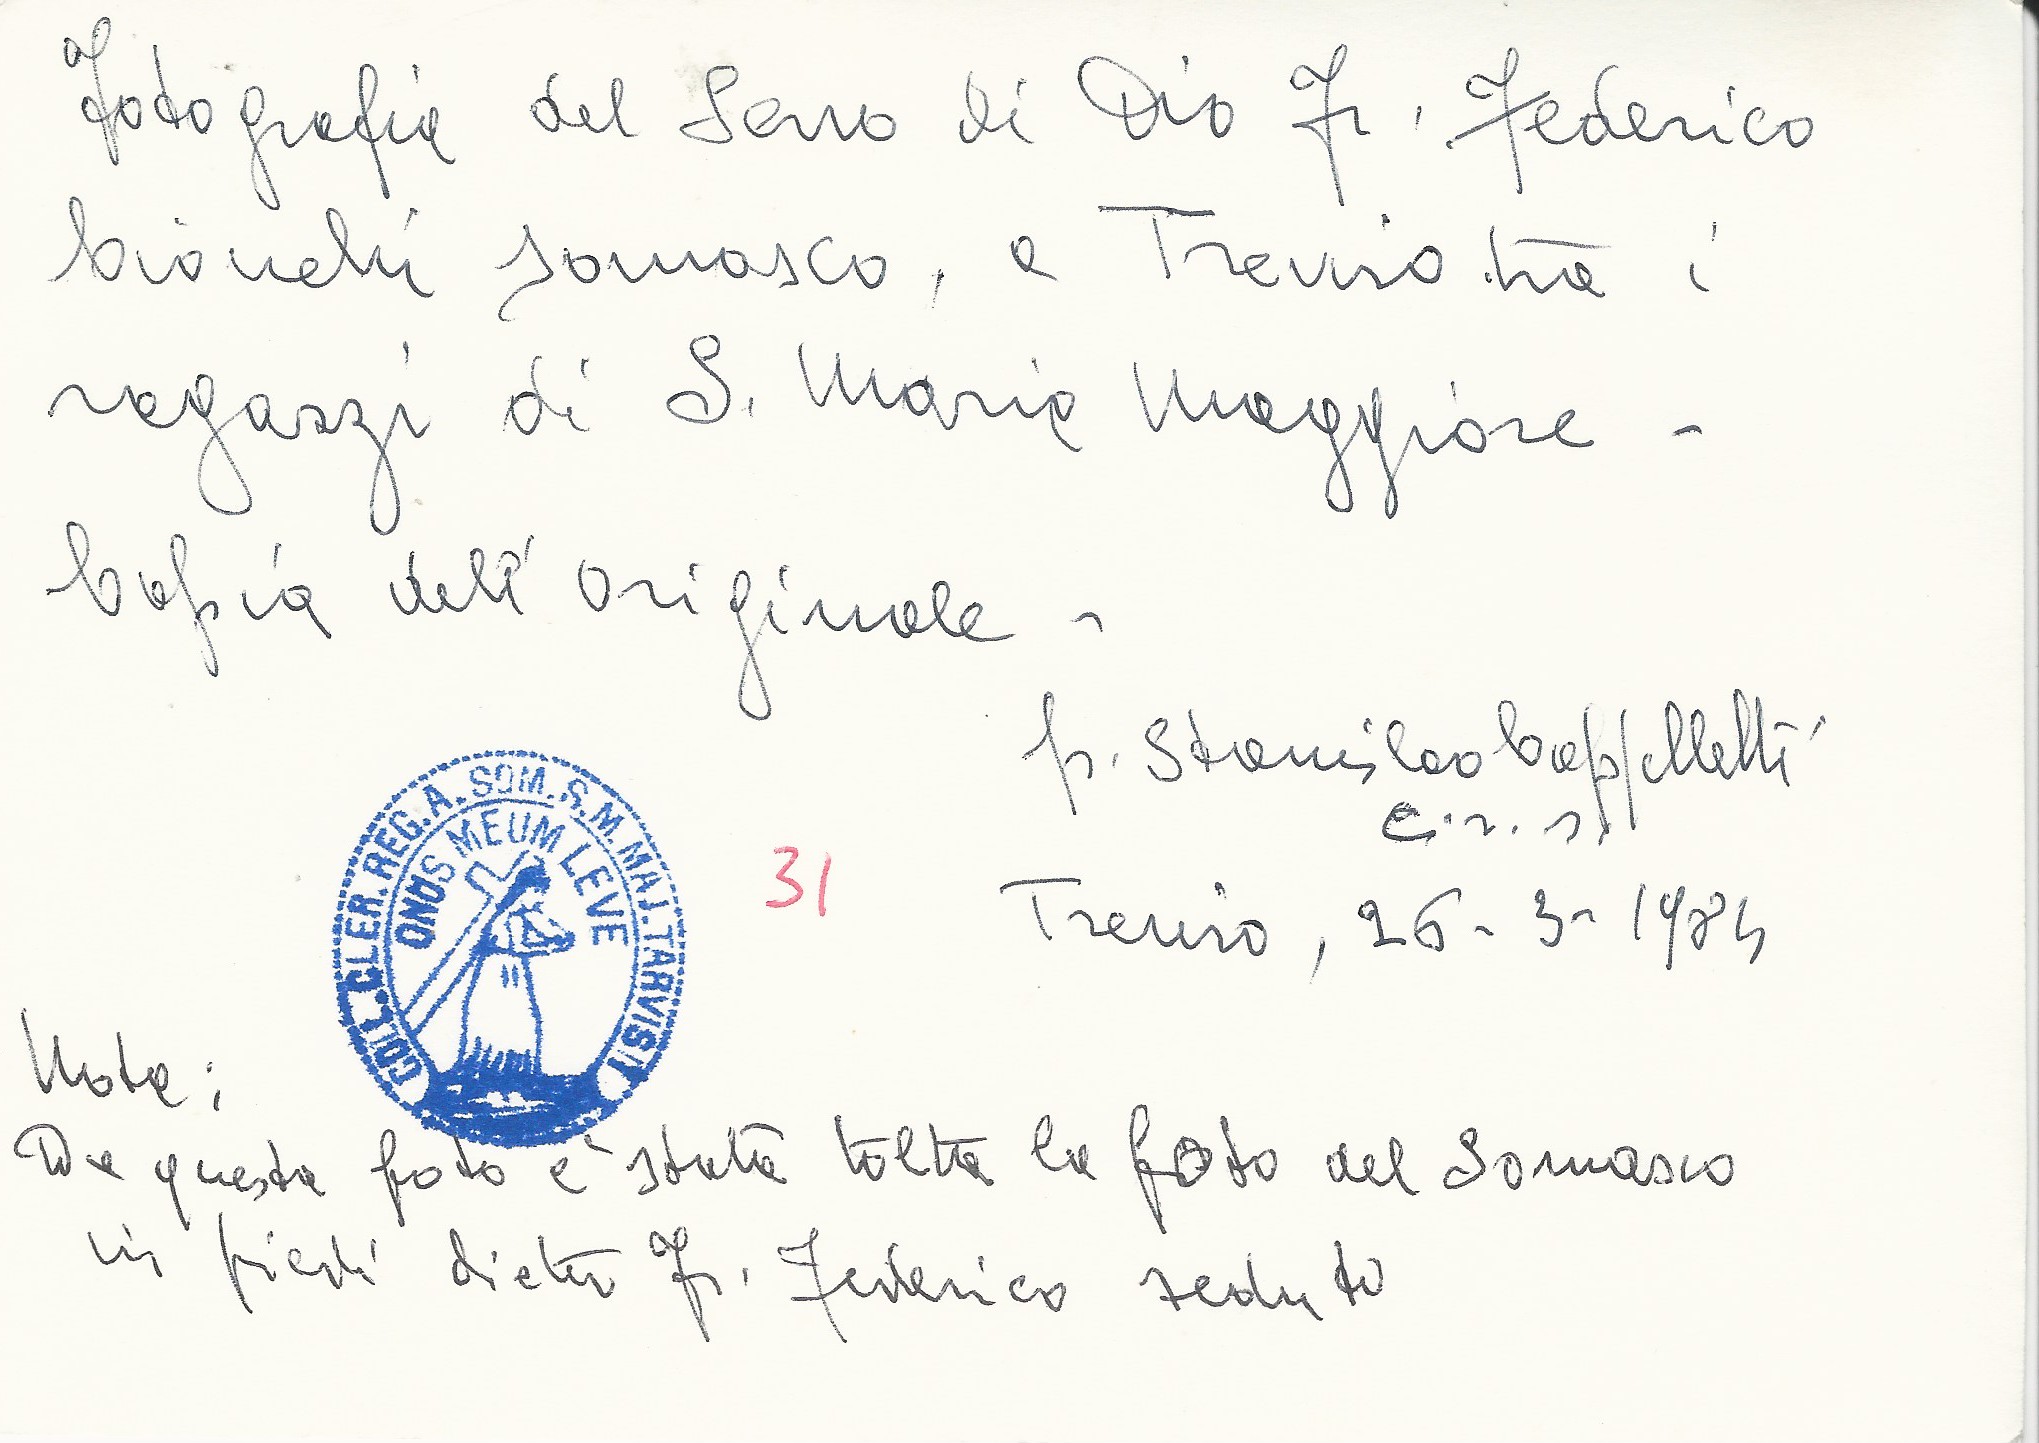 Fotografia del Servo di Dio Fr. Federico
Cionchi somasco, a Treviso tra i
ragazzi di S. Maria Maggiore -
Copia dell'originale -
p. Stanislao Cappelletti
c.r.s.
COLL.CLER.REG.A.SOM.S.M.MAJ.TARVISII
ONUS MEUM LEVE
31
Treviso, 26-3-1984
Nota:
Da questa foto e' stata tolta la foto del Somasco
in piedi dietro Fr. Federico seduto